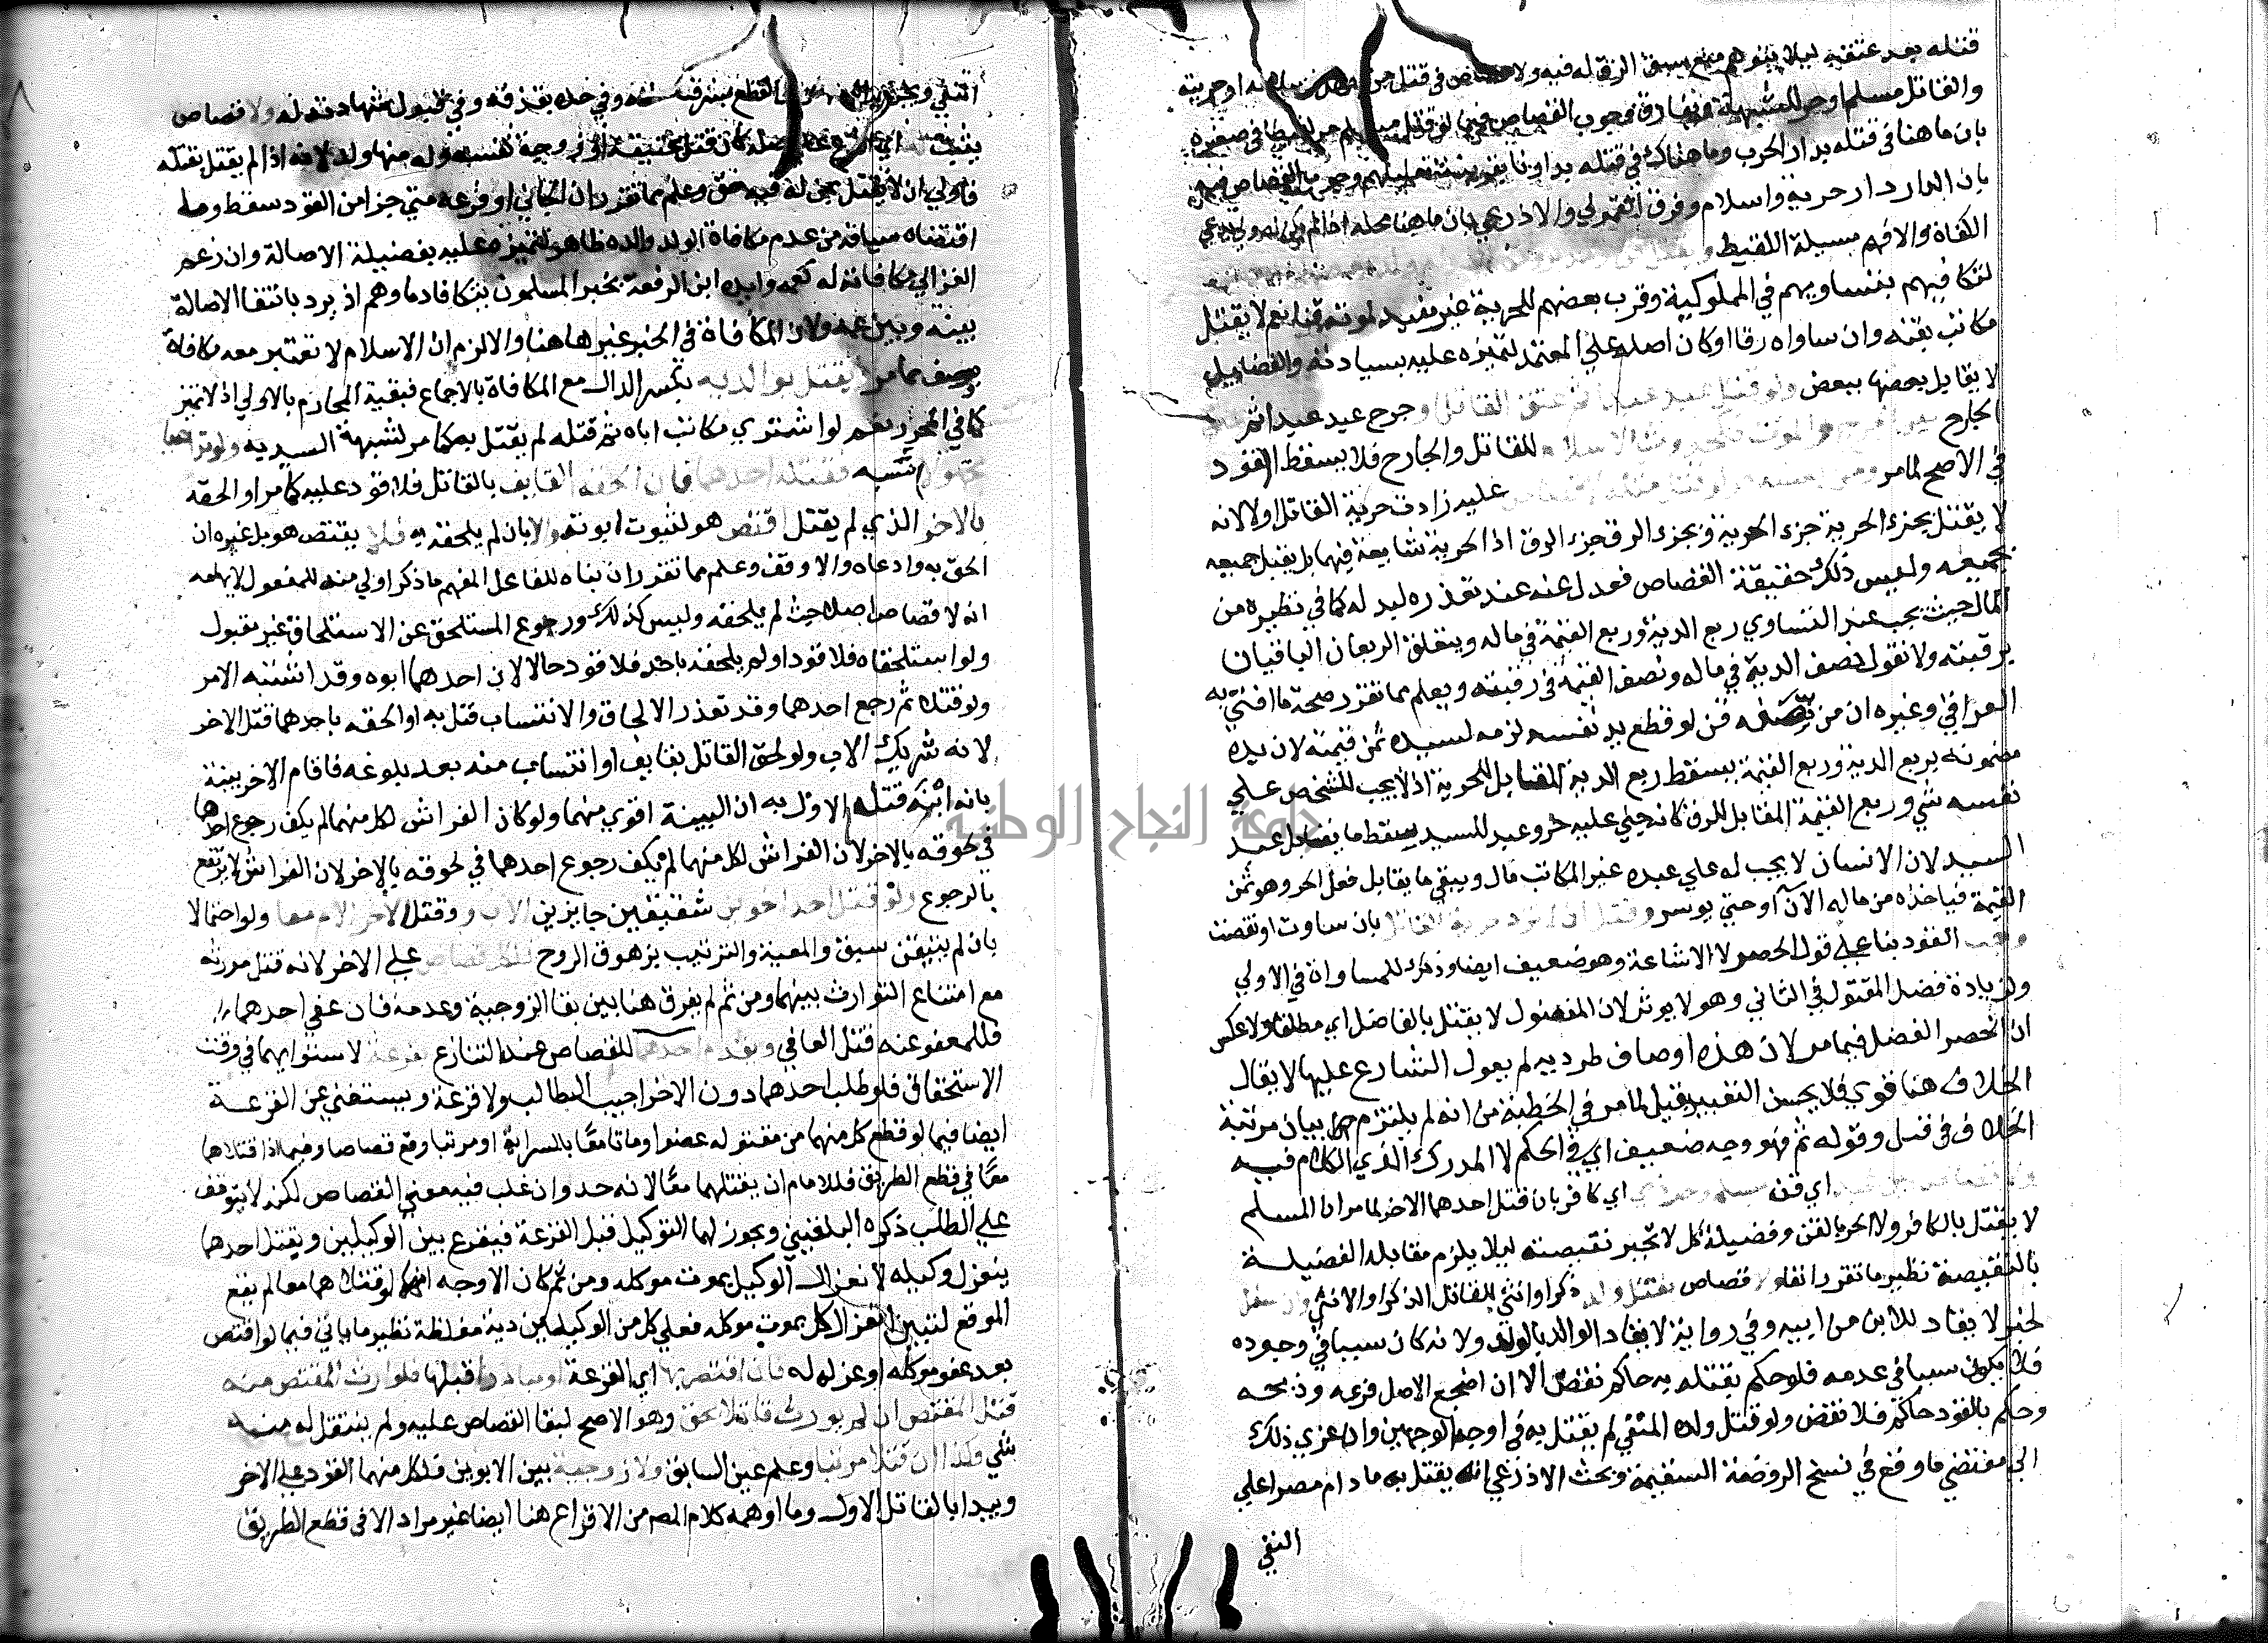 قتله بعد عتقه ليلا يتوهم منع سبق الرق له فيه ولا قصاص في قتل من
والقاتل مسلم او حر للشبهة ويفارق وجوب القصاص فيما لو قتل
بان ما هنا في قتله بدار الحرب وما هناك في قتله بدارنا
بان الدار دار حرية واسلام وفرق القمولي والاذرعي بان ما هنا محله اذا لم
الكفاة والافهم بسيلة اللقيط
لتكافيهم بتساويهم في المملوكية وقرب بعضهم للحرية غير مفيد لموته قنا نعم لا يقتل
مكاتب بقنه وان ساواه رقا او كان اصله علي المعتمد لتميزه عليه بسيادته والفضايل
لا يقابل بعضها ببعض ولو قتل عبد عبدا ثم عتق القاتل او جرح عبد عبدا ثم
الجارح بين الجرح والموت للقاتل والجارح فلا يسقط القود
في الاصح لما مر ومن عليه زادت حرية القاتل اولا لانه
لا يقتل بجزء الحرية جزء الحرية وبجزء الرق جزء الرق اذ الحرية شايعة فيهما بل يقتل جميعه
بجميعه وليس ذلك حقيقة القصاص فعدل عنه عند تعذره لبدله كما في نظيره من
المال حيث يجب عند التساوي ربع الدية وربع القيمة في ماله ويتعلق الربعان الباقيان
برقبته ولا نقول نصف الدية في ماله ونصف القيمة في رقبته ويعلم مما تقرر صحة ما افتي به
العراقي وغيره ان من نصفه قن لو قطع يد نفسه لزمه لسيده ثمن قيمته لان يده
مضمونه بربع الدية وربع القيمة يسقط ربع الدية المقابل للحرية اذ لا يجب للشخص علي
نفسه شي وربع القيمة المقابل للرق كانه جني عليه حر وعبد للسيد يسقط ما يقابل عبد
السيد لان الانسان لا يجب له علي عبده غير المكاتب مال ويبقي ما يقابل فعل الحر وهو ثمن
القيمة فياخذه من ماله الآن او حتي يوسر وقيل ان لم تزد حرية القاتل بان ساوت او نقصت
وجب القود بنا علي قول الحصر لا الاشاعة وهو ضعيف ايضا وذلك للمساواة في الاولي
ولزيادة فضل المقتول في الثاني وهو لا يوثر لان المفضول لا يقتل بالفاضل اي مطلقا ولا عكس
ان انحصر الفضل فيما مر لان هذه اوصاف طرديه لم يعول الشارع عليها لا يقال
الخلاف هنا قوي فلا يحسن التعبير بقيل لما مر في الخطبة من انه لم يلتزم بها بيان مرتبة
الخلاف في قيل وقوله ثم فهو وجيه ضعيف اي في الحكم لا المدرك الذي الكلام فيه
ولا قصاص بين عبد اي قن مسلم وحر ذمي اي كافر بان قتل احدهما الاخر لما مر ان المسلم
لا يقتل بالكافر ولا الحر بالقن وفضيلة كل لا تجبر نقيصته ليلا يلزم مقابلة الفضيلة
بالنقيصة نظير ما تقرر انفا ولا قصاص بقتل ولد ذكرا او انثي للقاتل الذكر او الانثي وان سفل
لخبر لا يقاد للابن من ابيه وفي رواية لا يقاد الوالد بالولد ولانه كان سببا في وجوده
فلا يكون سببا في عدمه فلو حكم بقتله به حاكم نقض الا ان اضجع الاصل فرعه وذبحه
وحكم بالقود حاكم فلا نقض ولو قتل ولده المنفي لم يقتل به في اوجه الوجهين وان عزي ذلك
الي مقتضي ما وقع في نسخ الروضة السقيمة وبحث الاذرعي انه يقتل به ما دام مصرا علي
النفي
النفي القطع بسرقته وفي حده بقذفه وفي قبول شهادته له ولا قصاص
يثبت كان قتل عتيقه او زوجة نفسه وله منها ولد لانه اذا لم يقتل بقتله
فاولي ان لا يقتل بجزء له فيه حق وعلم مما تقرر ان الجاني او فرعه متي حاز من القود سقط وما
اقتضاه سياقه من عدم مكافاة الولد والده ظاهر لتميزه عليه بفضيلة الاصالة وان زعم
الغزالي مكافاته له كعمه وايده ابن الرفعة بخبر المسلمون تتكافا دماوهم اذ يرد بانتفا الاصالة
بينه وبين عمه ولان المكافاة في الخبر غيرها هنا والا لزم ان الاسلام لا تعتبر معه مكافاة
بوصف مما مر ويقتل بوالديه بكسر الدال مع المكافاة بالاجماع فبقية المحارم بالاولي اذ لا تميز
كما في المحرر نعم لو اشتري مكاتب اباه ثم قتله لم يقتل به كما مر لشبهة السيدية ولو تداعيا
مجهولا نسبه فقتله احدهما فان الحقه القايف بالقاتل فلا قود عليه كما مر او الحقه
بالاخر الذي لم يقتل اقتص هو لثبوت ابوته والا بان لم يلحقه به فلا يقتص هو بل غيره ان
الحق به وادعاه والا وقف وعلم مما تقرر ان بناه للفاعل المفهم ما ذكر اولي منه للمفعول لايهامه
انه لا قصاص اصلا حيث لم يلحقه وليس كذلك ورجوع المستلحق عن الاستلحاق غير مقبول
ولو استلحقاه فلا قود او لم يلحقه باحد فلا قود حالا لان احدهما ابوه وقد اشتبه الامر
ولو قتلاه ثم رجع احدهما وقد تعذر الالحاق والانتساب قتل به او الحقه باحدهما قتل الاخر
لانه شريك الاب ولو لحق القاتل بقايف او انتساب منه بعد بلوغه فاقام الاخر بينة
بانه ابنه قتله الاول به ان البينة اقوي منهما ولو كان الفراش لكل منهما لم يكف رجوع احدهما
في لحوقه بالاخر لان الفراش لكل منهما لم يكف رجوع احدهما في لحوقه بالاخر لان الفراش لا يرتفع
بالرجوع ولو قتل احد اخوين شقيقين حايزين الاب وقتل الاخر الام معا ولو احتمالا
بان لم يتيقن سبق والمعية والترتيب بزهوق الروح فلكل قصاص علي الاخر لانه قتل مورثه
مع امتناع التوارث بينهما ومن ثم لم يفرق هنا بين بقا الزوجية وعدمه فان عفي احدهما
فللمعفو عنه قتل العافي ويقدم احدهما للقصاص عند التنازع بقرعة لاستوايهما في وقت
الاستحقاق فلو طلب احدهما دون الاخر اجيب الطالب ولا قرعة ويستغني عن القرعة
ايضا فيما لو قطع كل منهما من مقتوله عضوا وماتا معا بالسراية او مرتبا وقع قصاصا وفيما اذا قتلاهما
معا في قطع الطريق فللامام ان يقتلهما معا لانه حد وان غلب فيه معني القصاص لكنه لا يتوقف
علي الطلب ذكره البلقيني ويجوز لهما التوكيل قبل القرعة فيقرع بين الوكيلين ويقتل احدهما
ينعزل وكيله لانعزال الوكيل بموت موكله ومن ثم كان الاوجه انهما لو قتلاهما معا لم يقع
الموقع لتبين انعزال كل بموت موكله فعلي كل من الوكيلين دية مغلظة نظير ما ياتي فيما لو اقتص
بعد عفو موكله او عزله له فان اقتص بها اي القرعة او مبادرا قبلها فلوارث المقتص منه
قتل المقتص ان لم يورث قاتلا بحق وهو الاصح لبقا القصاص عليه ولم ينتقل له منه
شي وكذا ان قتلا مرتبا وعلم عين السابق ولا زوجية بين الابوين فلكل منهما القود علي الاخر
ويبدا بالقاتل الاول وما اوهمه كلام المص من الاقراع هنا ايضا غير مراد الا في قطع الطريق
جامعة النجاح الوطنية